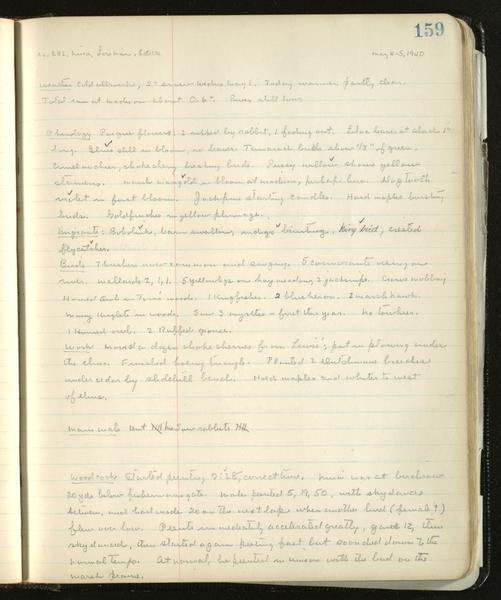 159
AL, EBL, Nina, Estella May 4-5, 1940
Weather Cold all week, 2" snow Wednes May 1. Today warmer, partly clear.
Total rain at Madison about 0.6". River still low
Phenology Pasque flowers: 2 nipped by rabbit, 1 fading out. Lilac leaves at about 1"
long. Elms still in bloom, no leaves. Tamarack buds show 1/8" of green.
Amelanchier, chokecherry breaking buds. Pussy willow shows yellow
stamens. Marsh marigold in bloom at Madison, perhaps here. Dogtooth
violet in first bloom. Jackpine starting candles. Hard maples bursting
buds. Goldfinches in yellow plumage.
Migrants: Bobolink, barn swallow, indigo bunting, king bird, crested
flycatcher.
Birds Thrashers now common and singing. 5 cormorants on
river. Mallards 2, 1, 1. 5 yellowlegs on hay meadow, 2 jacksnipe. Crows mobbing
Horned Owl in woods. 1 Kingfisher. 2 blue heron. 2 marsh hawk.
Many kinglets in woods. Saw 3 myrtles – first this year. No towhees.
1 Horned owl. 2 Ruffed grouse.
Work Moved a dozen chokecherries from Lewis's, put in plowing under
the elms. Finished boxing Planted 2 Dutchmans breeches
under cedar by bench. Hard maples and to west
of elms.
Mammals Saw rabbits
Woodcock Started peenting 7:28, correct time. Nina was at
20 yds below gate. Male peented 5, 19, 50, with skydances
between, and had made 20 on the next lap when another bird (female?)
flew over low. Peents immediately accelerated greatly, gave 12, then
skydanced, then started again peenting fast but soon died down to the
normal tempo. At normal, he peented in unison with the bird on the
marsh prairie.